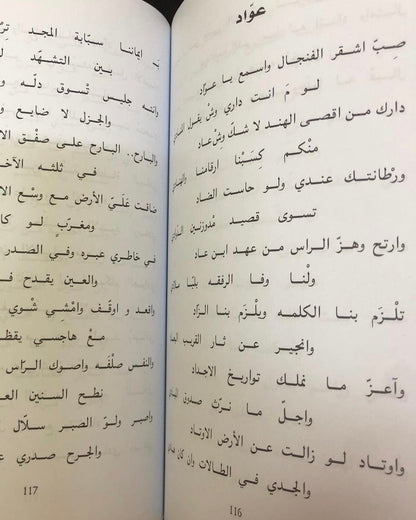 عوّاد
صبّ اشقر الفنجال واسمع يا عوّاد
لو مَ انت داري وشْ يقول
دارك من اقصى الهند لا شكّ وشْ عاد
منْكم كِسَبْنا ارقامنا
ورْطانتك عندي ولو حاست الضاد
تسوى قصيد مْدوزنين
وارتح وهزّ الراس من عهد ابن عاد
ولْنا وفا الرفقه بليّا
تلْزَم بنا الكلمه ويلْزَم بنا الزّاد
وانجير عن ثار القريب
وآعزّ ما نملك تواريخ الاجداد
واجلّ ما نرث صدوق
واوتاد لو زالت عن الأرض الاوتاد
والجدي في الظالمات وان كان
116
بَـ ايماننا سبّابة المجد
بين التشهّد
وانته جليس تْسوق دلّه
والجزل لا ضايع
والبارح.. البارح على صفْق
في ثلثه الآخ
ضاقت عَلَيّ الأرض مع وسْع
ومغربٍ لو كا
في خاطري عبره وفي الصدر
والعين يقدح ف
واقعد و اوقف وامْشي شْوي
معْ هاجسي يقظ
والنفس صلْفه واصوك الرّاس
نطح السنين الع
واصبر ولوّ الصبر سلّال
والجرح صدري ع
117